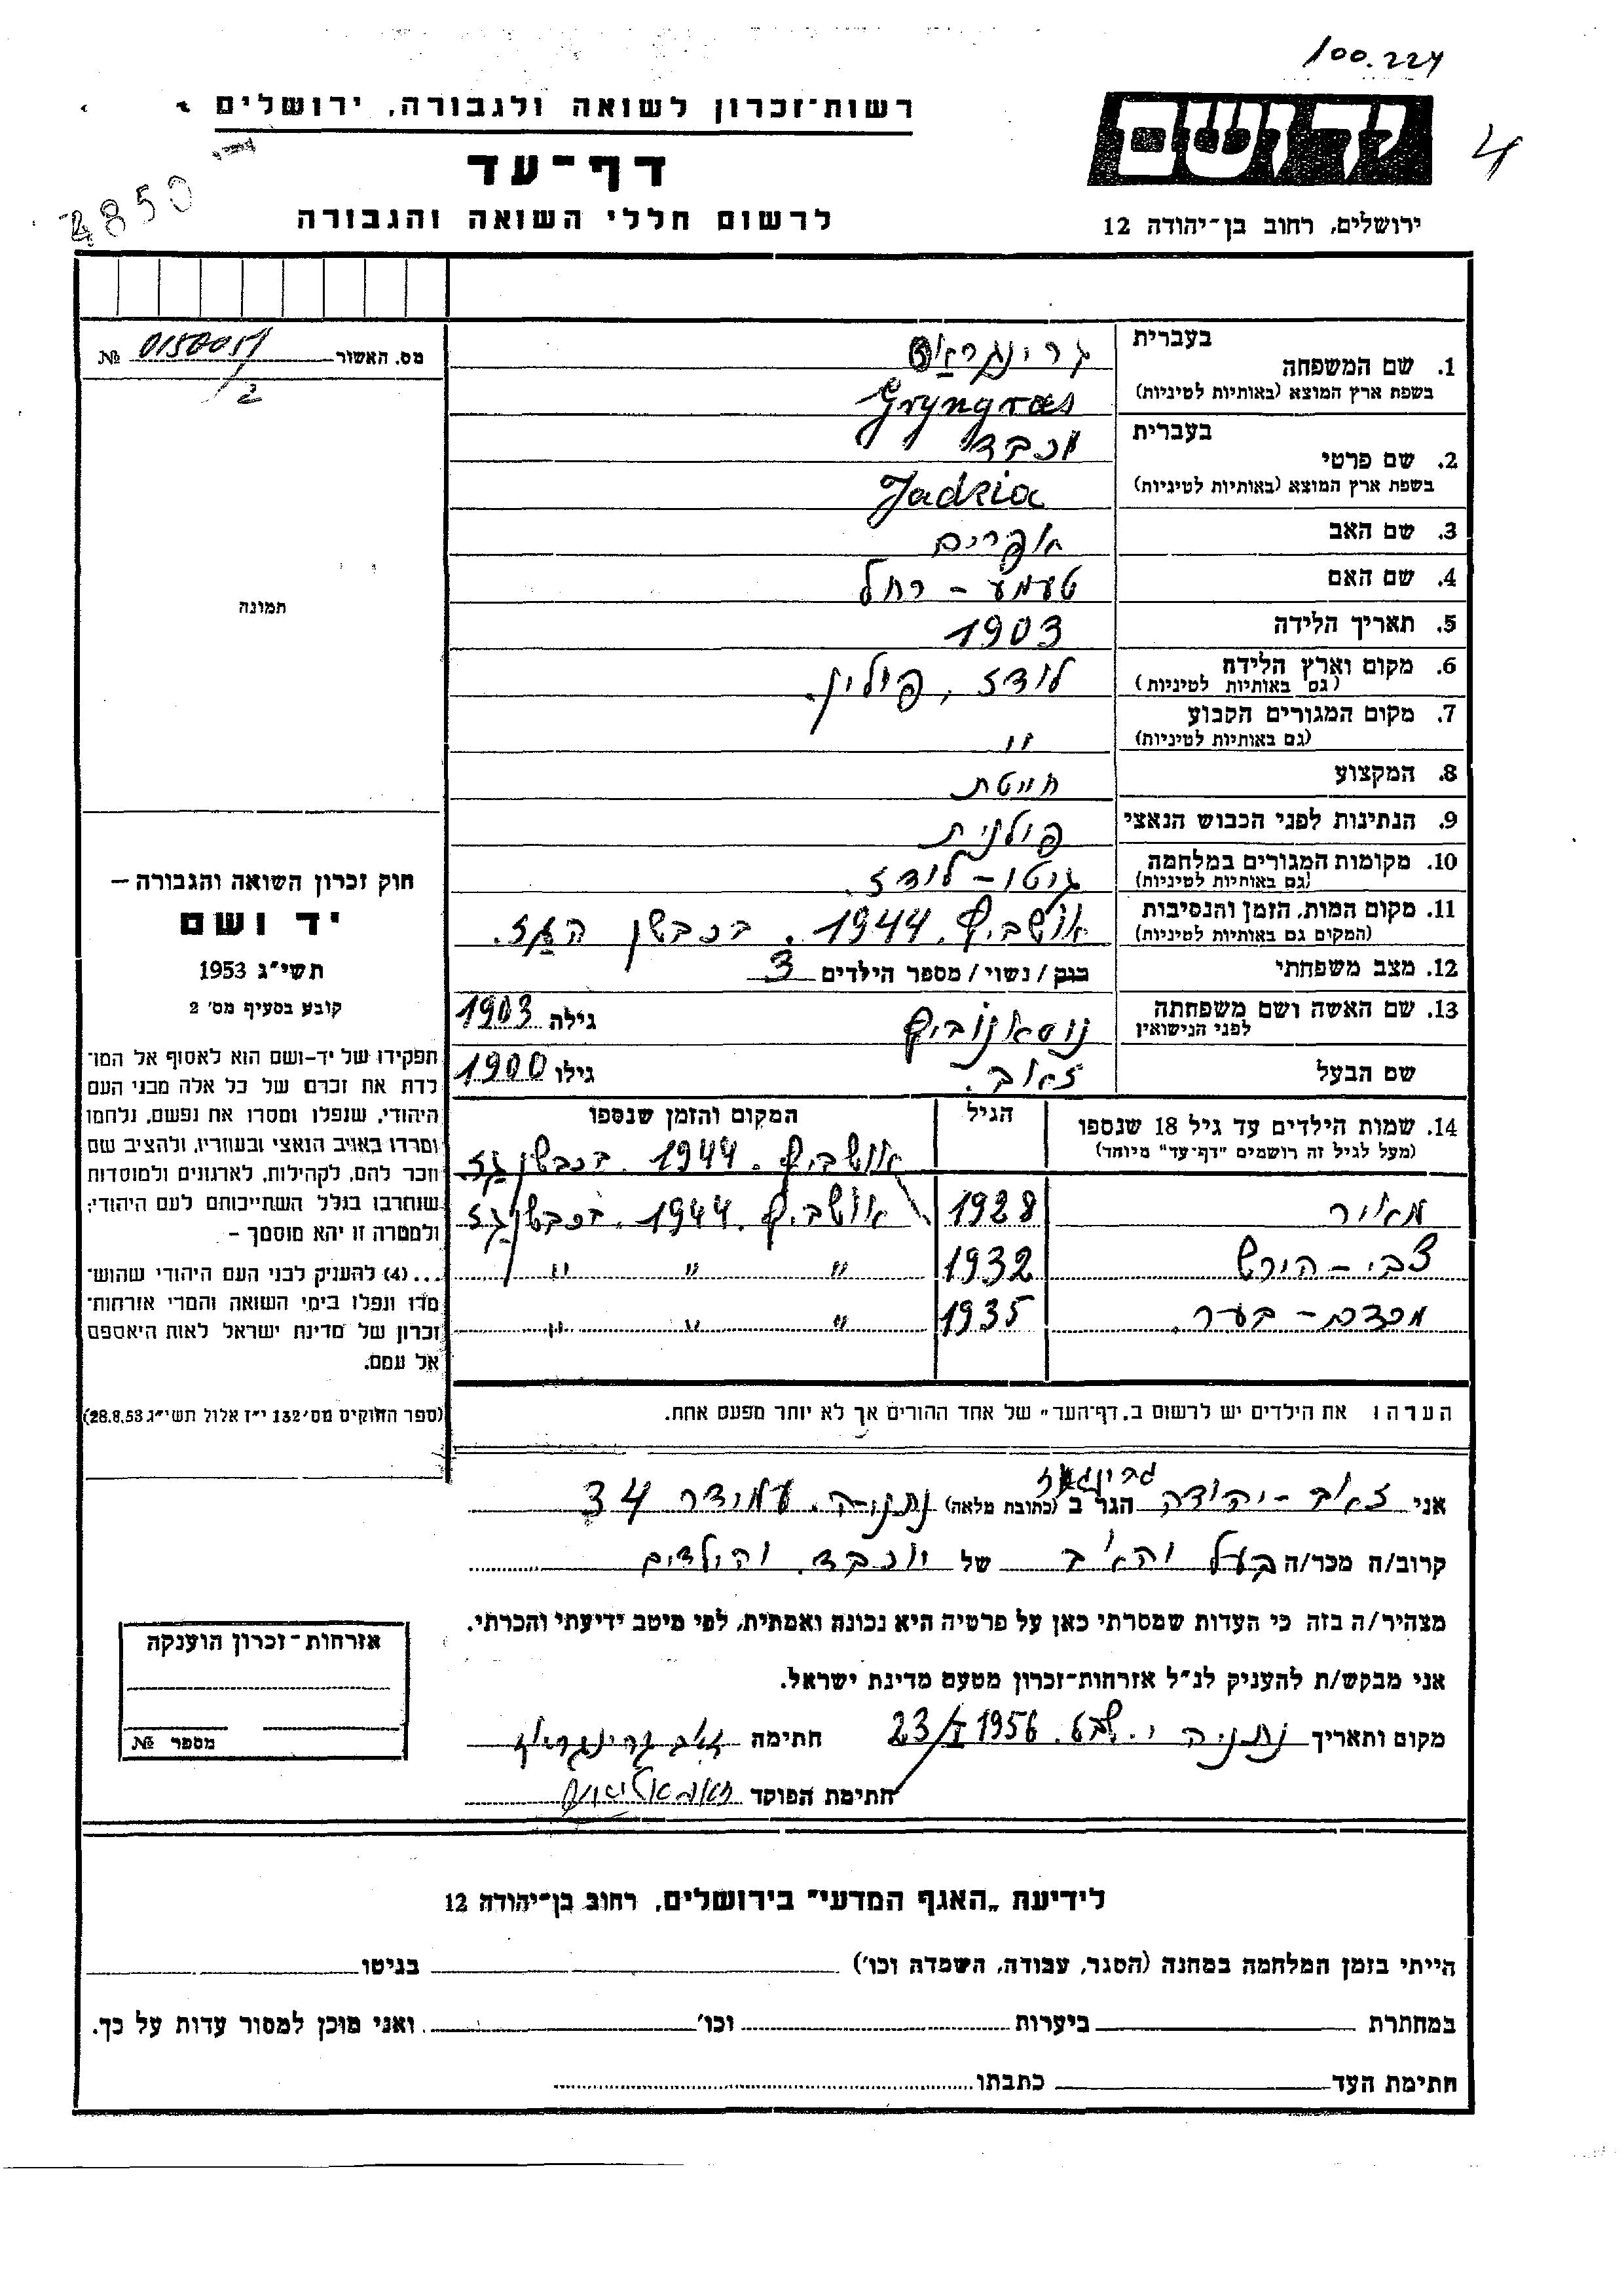 100.224
רשות־זכרון לשואה ולגבורה, ירושלים
ידושם
4
דף־עד
4850
לרשום חללי השואה והגבורה
ירושלים, רחוב בן־יהודה 12
מס. האשור № 0150051/2
1. שם המשפחה בעברית גרינגראס
בשפת ארץ המוצא (באותיות לטיניות) Gryngras
2. שם פרטי בעברית יוכבד
בשפת ארץ המוצא (באותיות לטיניות) Jadzia
3. שם האב אפרים
4. שם האם טעמע - רחל
5. תאריך הלידה 1903
6. מקום וארץ הלידה לודז, פולין.
(גם באותיות לטיניות)
7. מקום המגורים הקבוע "
(גם באותיות לטיניות)
8. המקצוע חייטת
9. הנתינות לפני הכבוש הנאצי פולנית
10. מקומות המגורים במלחמה גיטו - לודז.
(גם באותיות לטיניות)
11. מקום המות, הזמן והנסיבות אושביץ. 1944. בכבשן הגז.
(המקום גם באותיות לטיניות)
12. מצב משפחתי רווק / נשוי / מספר הילדים 3
13. שם האשה ושם משפחתה גילה 1903
לפני הנישואין
שם הבעל זאב. גילו 1900
14. שמות הילדים עד גיל 18 שנספו הגיל המקום והזמן שנספו
(מעל לגיל זה רושמים "דף־עד" מיוחד) אושביץ. 1944. בכבשן גז.
מאיר 1928 אושביץ. 1944. בכבשן גז
צבי - הירש 1932 " " "
בער. 1935 " " "
הערה: את הילדים יש לרשום ב„דף־העד" של אחד ההורים אך לא יותר מפעם אחת.
תמונה
חוק זכרון השואה והגבורה —
יד ושם
תשי"ג 1953
קובע בסעיף מס' 2
תפקידו של יד־ושם הוא לאסוף אל המו־
לדת את זכרם של כל אלה מבני העם
היהודי, שנפלו ומסרו את נפשם, נלחמו
ומרדו באויב הנאצי ובעוזריו, ולהציב שם
וזכר להם, לקהילות, לארגונים ולמוסדות
שנחרבו בגלל השתייכותם לעם היהודי;
ולמטרה זו יהא מוסמך —
...(4) להעניק לבני העם היהודי שהוש־
מדו ונפלו בימי השואה והמרי אזרחות־
זכרון של מדינת ישראל לאות היאספם
אל עמם.
(ספר החוקים מס' 132 י"ז אלול תשי"ג 28.8.53)
אני זאב - יהודה גרינגראז הגר ב (כתובת מלאה) נתניה. עמידר 34
קרוב/ה מכר/ה בעל והאב של יוכבד. והילדים
מצהיר/ה בזה כי העדות שמסרתי כאן על פרטיה היא נכונה ואמתית, לפי מיטב ידיעתי והכרתי.
אני מבקש/ת להעניק לנ"ל אזרחות־זכרון מטעם מדינת ישראל.
מקום ותאריך נתניה י. שבט. 23/I 1956 חתימה זאב גרינגראז
חתימת הפוקד
אזרחות־זכרון הוענקה
מספר №
לידיעת „האגף המדעי" בירושלים, רחוב בן־יהודה 12
הייתי בזמן המלחמה במחנה (הסגר, עבודה, השמדה וכו') בגיטו
במחתרת ביערות וכו' ואני מוכן למסור עדות על כך.
חתימת העד כתבתו